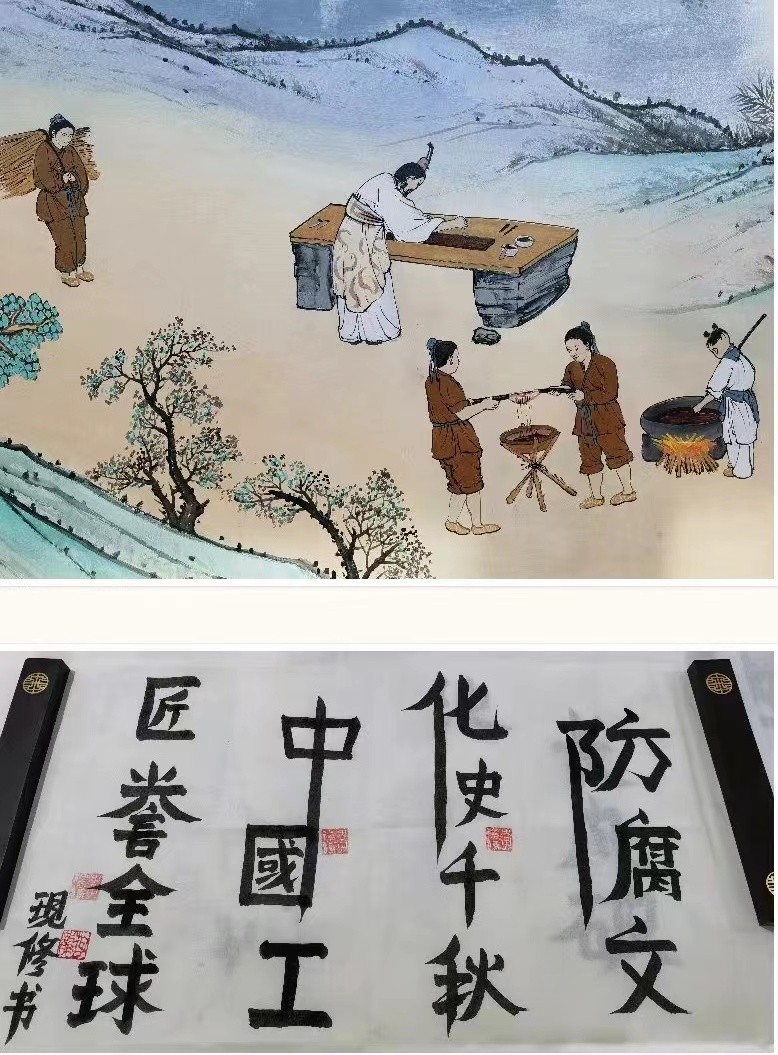 防腐文
化史千秋
中國工
匠誉全球
現修书